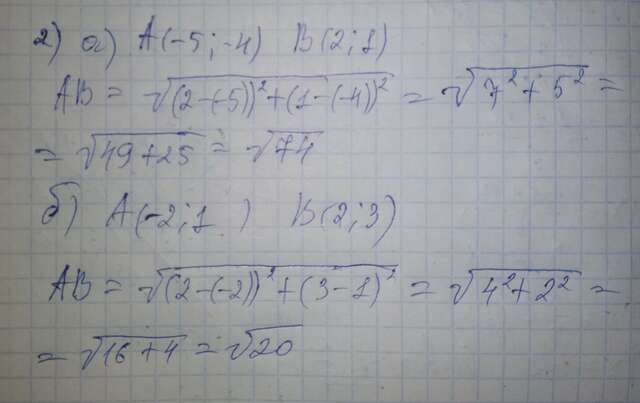 2) а) A(-5;-4) B(2;1)
AB = √(2-(-5))²+(1-(-4))² = √7²+5² =
= √49+25 = √74
б) A(-2;1) B(2;3)
AB = √(2-(-2))²+(3-1)² = √4²+2² =
= √16+4 = √20